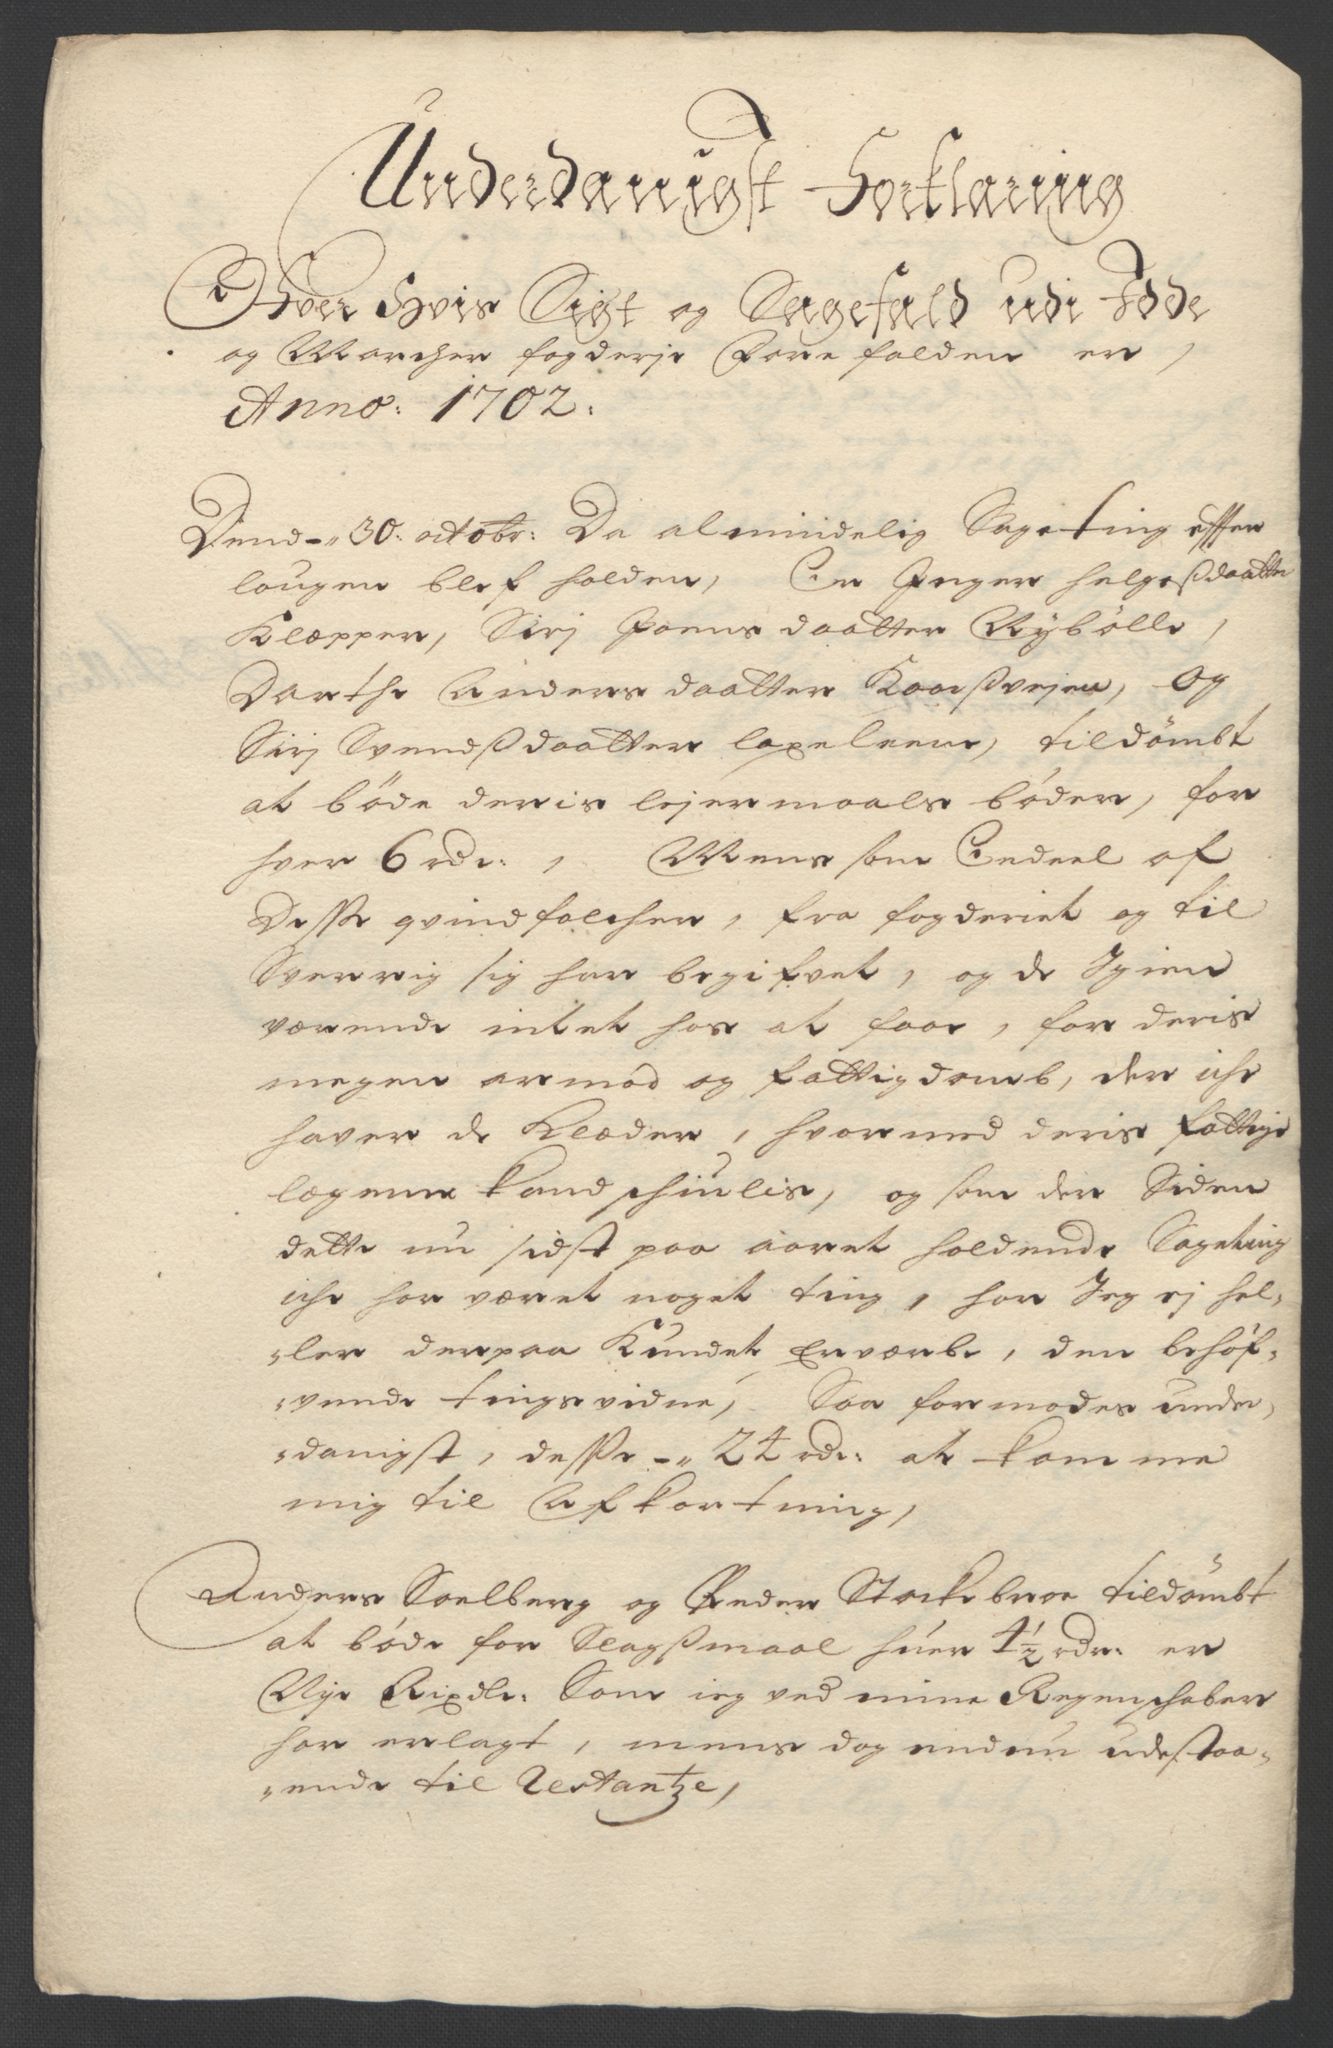 Underdanigst Forklaring
Ofver Hvis Sigt og Sagefald udi Idde
og Marcher fogderje Forefalden er,
Anno: 1702.
Dend -" 30: octobr: Da almindelig Sageting efter
lougen blef holden, Er Inger helgesdaatter
Klepper, Sirj Joens daatter Nybölle,
Dorthe Anders daatter Kaarsvejen, og
Sirj Svendsdaatter laxeleene, tildömbt
at böde deris lejermaals böder, for
hver 6 rdr: , Mens som Eendeel af
Desse qvindfolcher, fra fogderiet og til
Sverrig sig har begifvet, og de Igien
værende intet hos at faae, for deris
megen armod og fattigdomb, der iche
haver de Klæder, hvormed deris fattige
legeme kand schiulis, og som der Siden
dette nu sidst paa aaret holdende Sageting
iche har været noget ting, har Jeg ej hel-
-ler derpaa Kundet Erværbe, den behöf-
-vende tingsvidne, Saa formodes under-
-danigst, desse -" 24 rdr: at komme
mig til Afkortning,
Anders Soelberg og Peder Stockebroe tildömbt
at böde for Slagsmaal huer 4½ rdr: er
Nye Rixdlr: Som ieg ved mine Regenschaber
har erlagt, mens dog endnu udestaa-
-ende til Restantze,